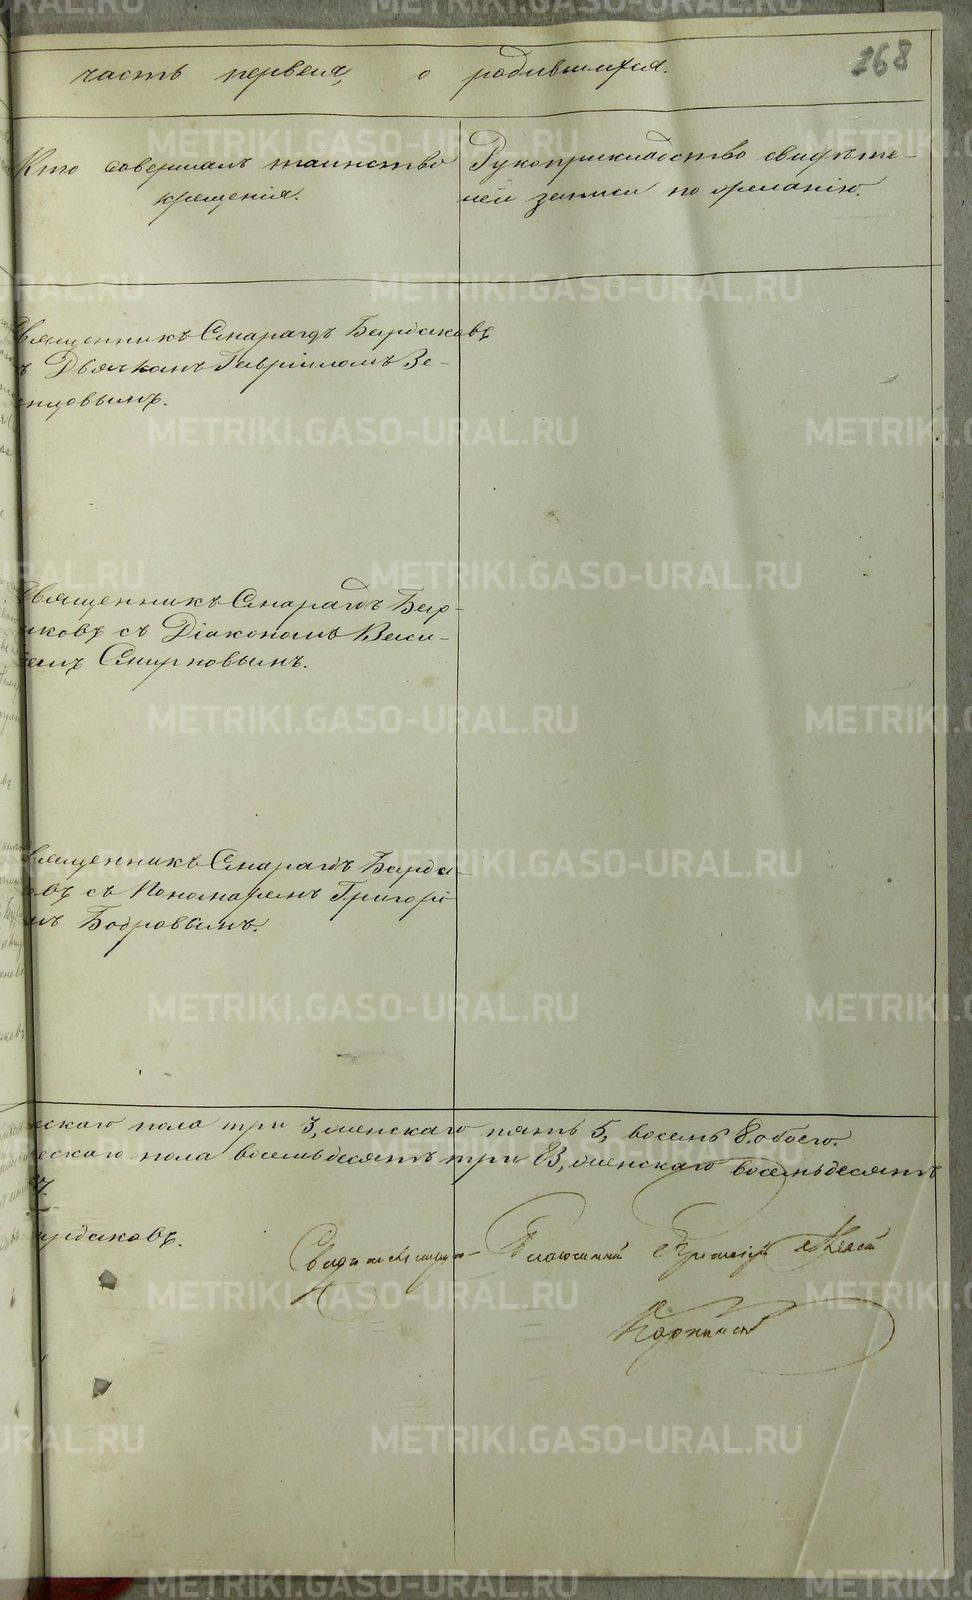 часть первая, о родившихся.
268
Кто совершалъ таинство крещенія.
Рукоприкладство свидѣте-
лей записи по желанію.
Священникъ Смарагдъ Бардаковъ
съ Дьячкомъ Гавріиломъ Зе-
нцовымъ.
Священникъ Смарагдъ Бар-
аковъ съ Діакономъ Васи-
емъ Смирновымъ.
Священникъ Смарагдъ Барда-
овъ съ Пономаремъ Григорі
мъ Бобровымъ.
ескаго пола три 3, женскаго пять 5, восемь 8 обоего.
ескаго пола восемьдесятъ три 83, женскаго восемьдесятъ
ардаковъ.
METRIKI.GASO-URAL.RU